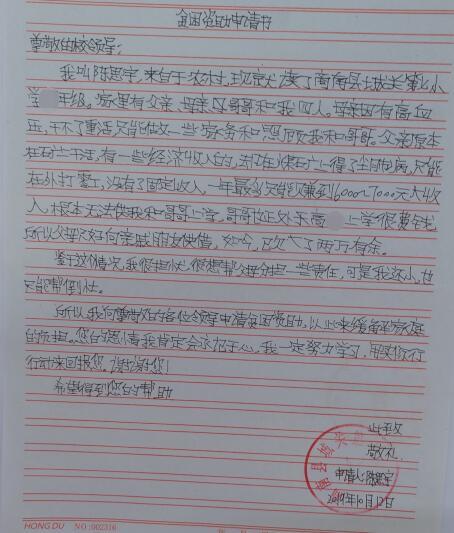 贫困资助申请书
尊敬的校领导:
我叫陈思宇,来自于农村,现就读于商南县城关第小
学年级。家里有父亲、母亲、哥哥和我四人。母亲因有高血
压,干不了重活,只能做一些家务和照顾我和哥哥。父亲原本
在矿上干活,有一些经济收入的,却在煤矿上得了病,只能
在外打零工,没有了固定收入,一年最多只能赚到6000~7000元的收
入,根本无法供我和哥哥上学,哥哥如今外上学很费钱,
所以父母只好向亲戚朋友去借,如今,已欠了两万有余。
鉴于这个情况,我很担忧,很想帮父母分担一些责任,可是我还小,也
只能帮倒忙。
所以,我向尊敬的各位领导申请贫困资助,以此来缓解家庭
的负担。您的恩情我肯定会记于心,我一定努力学习,用实际行
行动来回报您。谢谢您!
希望得到您的帮助
此致
敬礼
申请人:陈思宇
2019年10月12日
HONG DU NO:002316